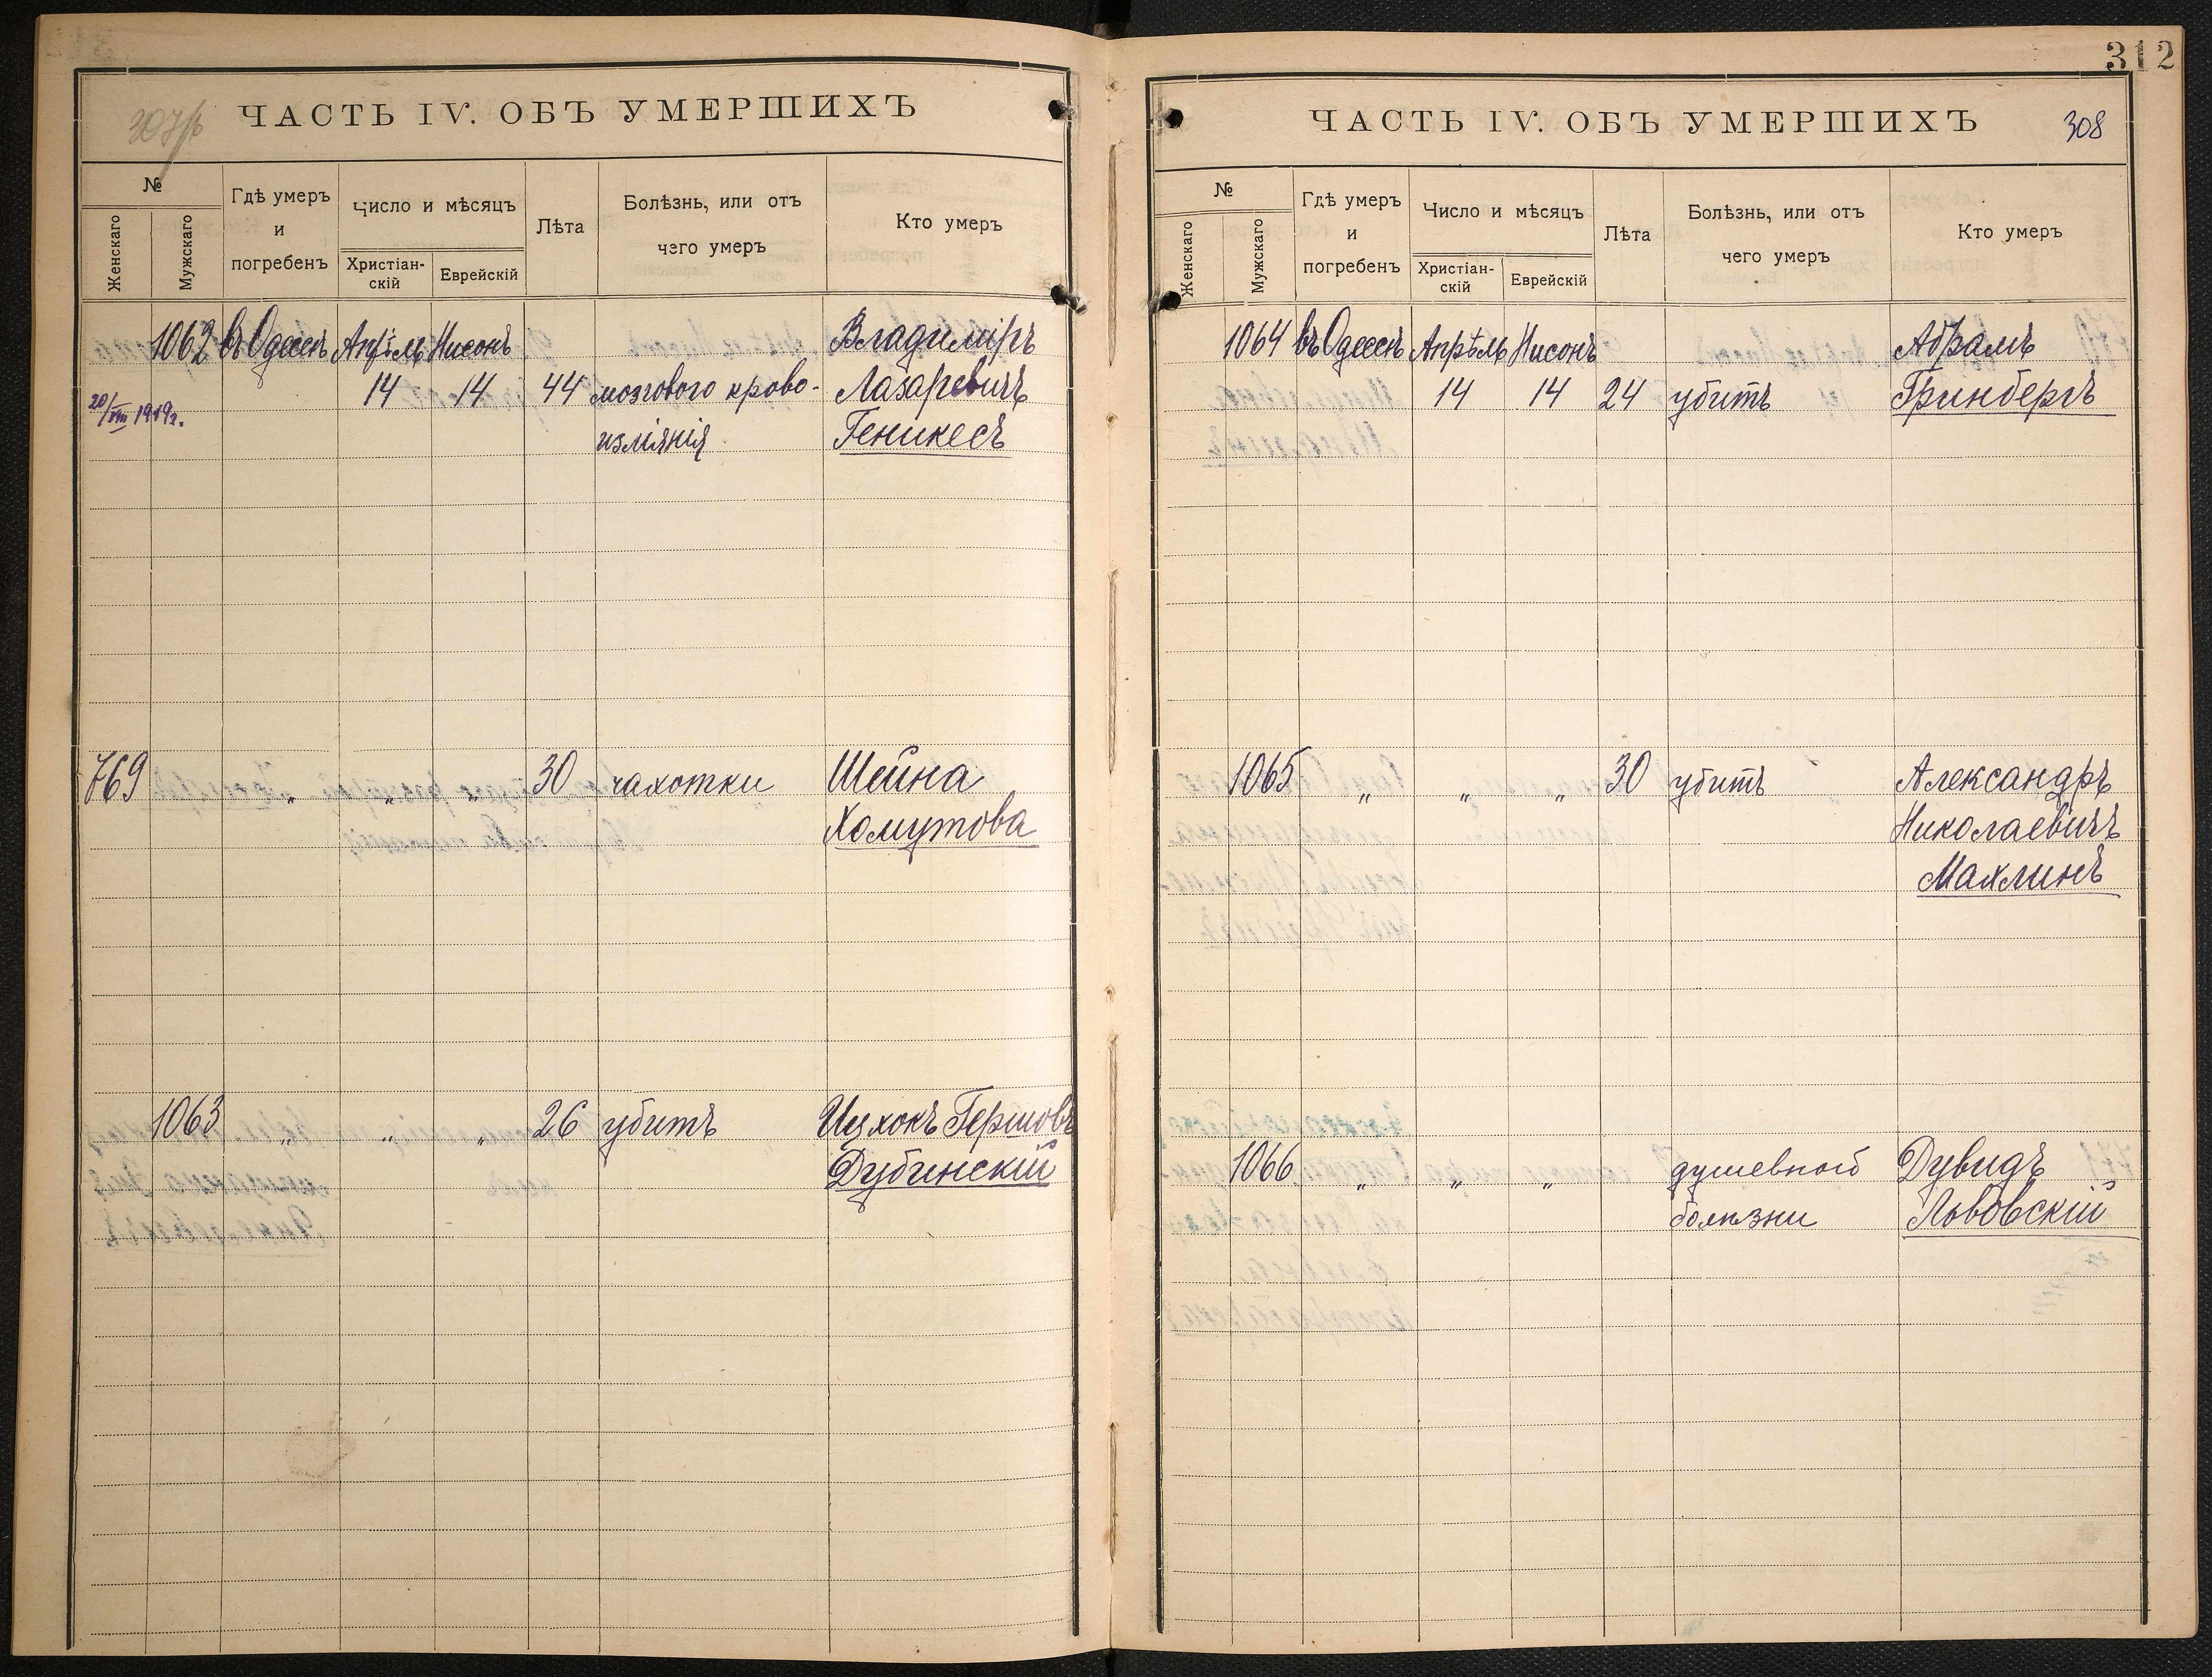 307/б
ЧАСТЬ IV. ОБЪ УМЕРШИХЪ
№
Женскаго
Мужскаго
Гдѣ умеръ
и
погребенъ
Число и мѣсяцъ
Христіан-
скій
Еврейскій
Лѣта
Болѣзнь, или отъ
чего умеръ
Кто умеръ
1062 въ Одессѣ Апрѣль Нисонъ Владиміръ
20/VIII 1919г. 14 14 44 мозгового крово- Лазаревичъ
изліянія Геникесъ
769 „ „ „ 30 чахотки Шейна
Хомутова
1063 „ „ „ 26 убитъ Ицхокъ Гершовъ
Дубинскій
312
ЧАСТЬ IV. ОБЪ УМЕРШИХЪ
308
№
Женскаго
Мужскаго
Гдѣ умеръ
и
погребенъ
Число и мѣсяцъ
Христіан-
скій
Еврейскій
Лѣта
Болѣзнь, или отъ
чего умеръ
Кто умеръ
1064 въ Одессѣ Апрѣль Нисонъ Абрамъ
14 14 24 убитъ Гринбергъ
1065 „ „ „ 30 убитъ Александръ
Николаевичъ
Махлинъ
1066 „ „ „ душевной Дувидъ
болѣзни Львовскій